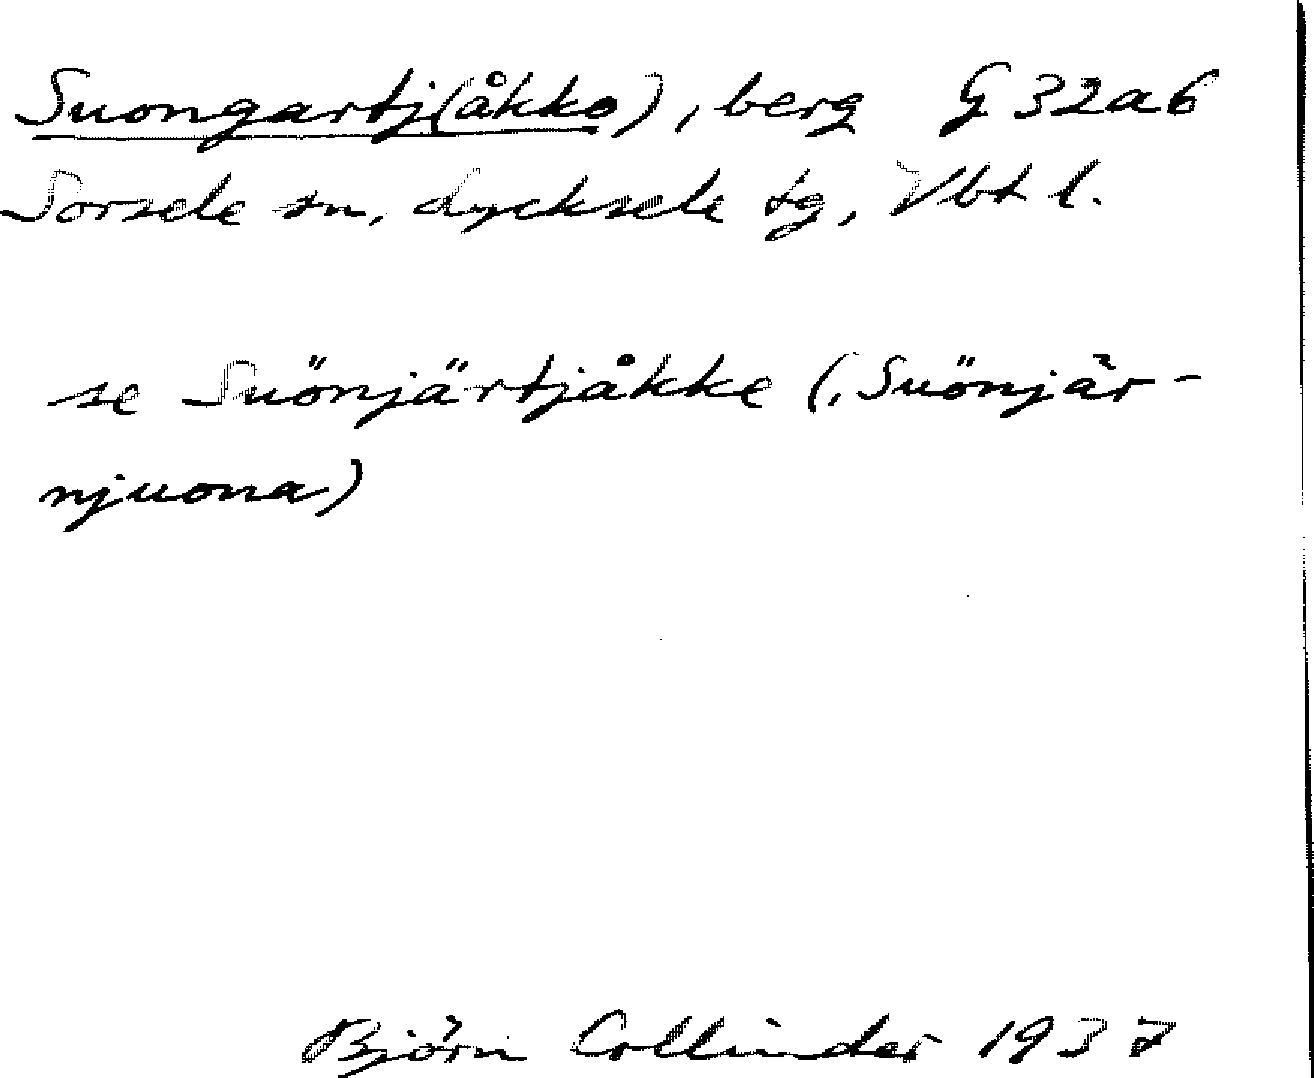 Suongartj(åkko), berg G 32a6
Sorsele sn, Lycksele tg, Vbt l.
se Suönjärtjåkke (, Suönjär-
njuona)
Björn Collinder 1937